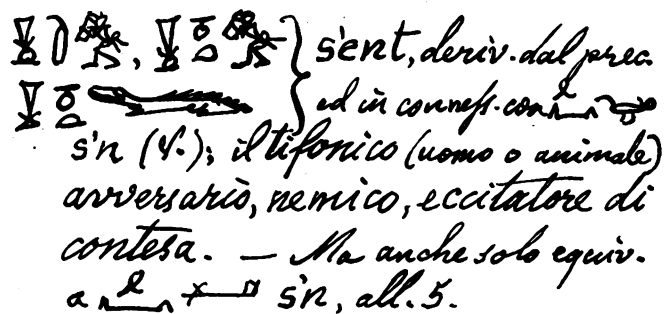 śent, deriv. dal prec.
ed in conness. con
śn (V.); il tifonico (uomo o animale)
avversario, nemico, eccitatore di
contesa. — Ma anche solo equiv.
a śn, all. 5.